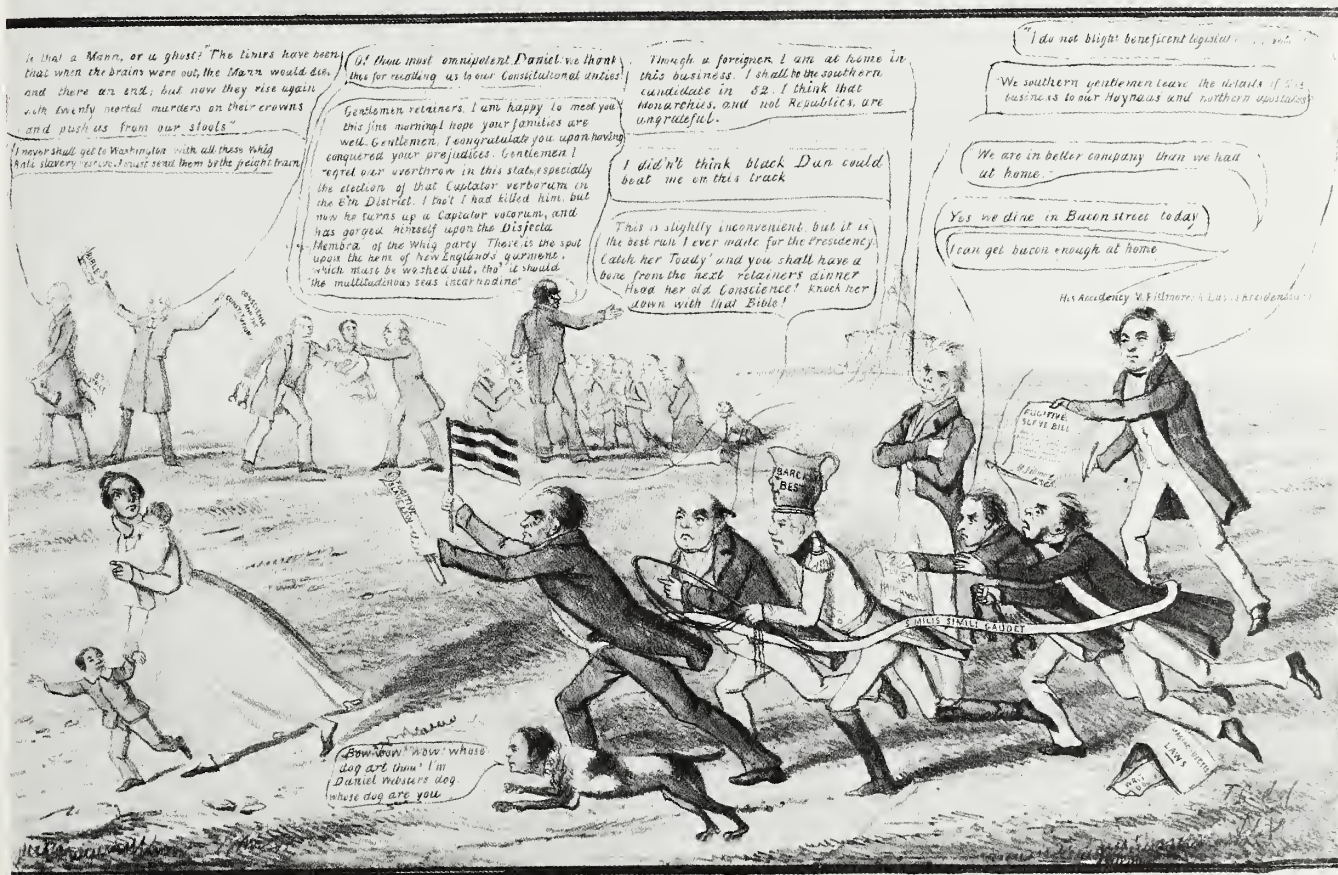 Is that a Mann, or a ghost? "The times have been
that when the brains were out, the Mann would die,
and there an end; but now they rise again
with twenty mortal murders on their crowns
and push us from our stools"
I never shall get to Washington with all these Whig
Anti slavery I must send them by the freight train
O! thou most omnipotent Daniel. we thank
thee for recalling us to our Constitutional duties!
Gentlemen retainers, I am happy to meet you
this fine morning I hope your families are
well. Gentlemen, I congratulate you upon having
conquered your prejudices. Gentlemen I
regret our overthrow in this state, especially
the election of that Captator verborum in
the 8th District. I tho't I had killed him, but
now he turns up a Captator vocorum, and
has gorged himself upon the Disjecta
Membra of the Whig party There is the spot
upon the hem of New England's garment,
which must be washed out, tho' it should
"the multitudinous seas incarnadine"
Though a foreigner I am at home in
this business. I shall be the southern
candidate in 52. I think that
Monarchies, and not Republics, are
ungrateful.
I didn't think black Dan could
beat me on this track
This is slightly inconvenient, but it is
the best run I ever made for the Presidency.
Catch her Toady' and you shall have a
bone from the next retainers dinner
Head her old Conscience! Knock her
down with that Bible!
"I do not blight beneficent
We southern gentlemen leave the details of this
business to our Haynaus and northern apostates
We are in better company than we had
at home.
Yes we dine in Bacon street today
I can get bacon enough at home
His Accidency M Fillmore
CONSCIENCE
AND THE
CONSTITUTION
BARCLAY'S
BEST
FUGITIVE
SLAVE BILL
SIMILIS SIMILI GAUDET
Bow wow wow! whose
dog art thou? I'm
Daniel Websters dog
whose dog are you
LAWS